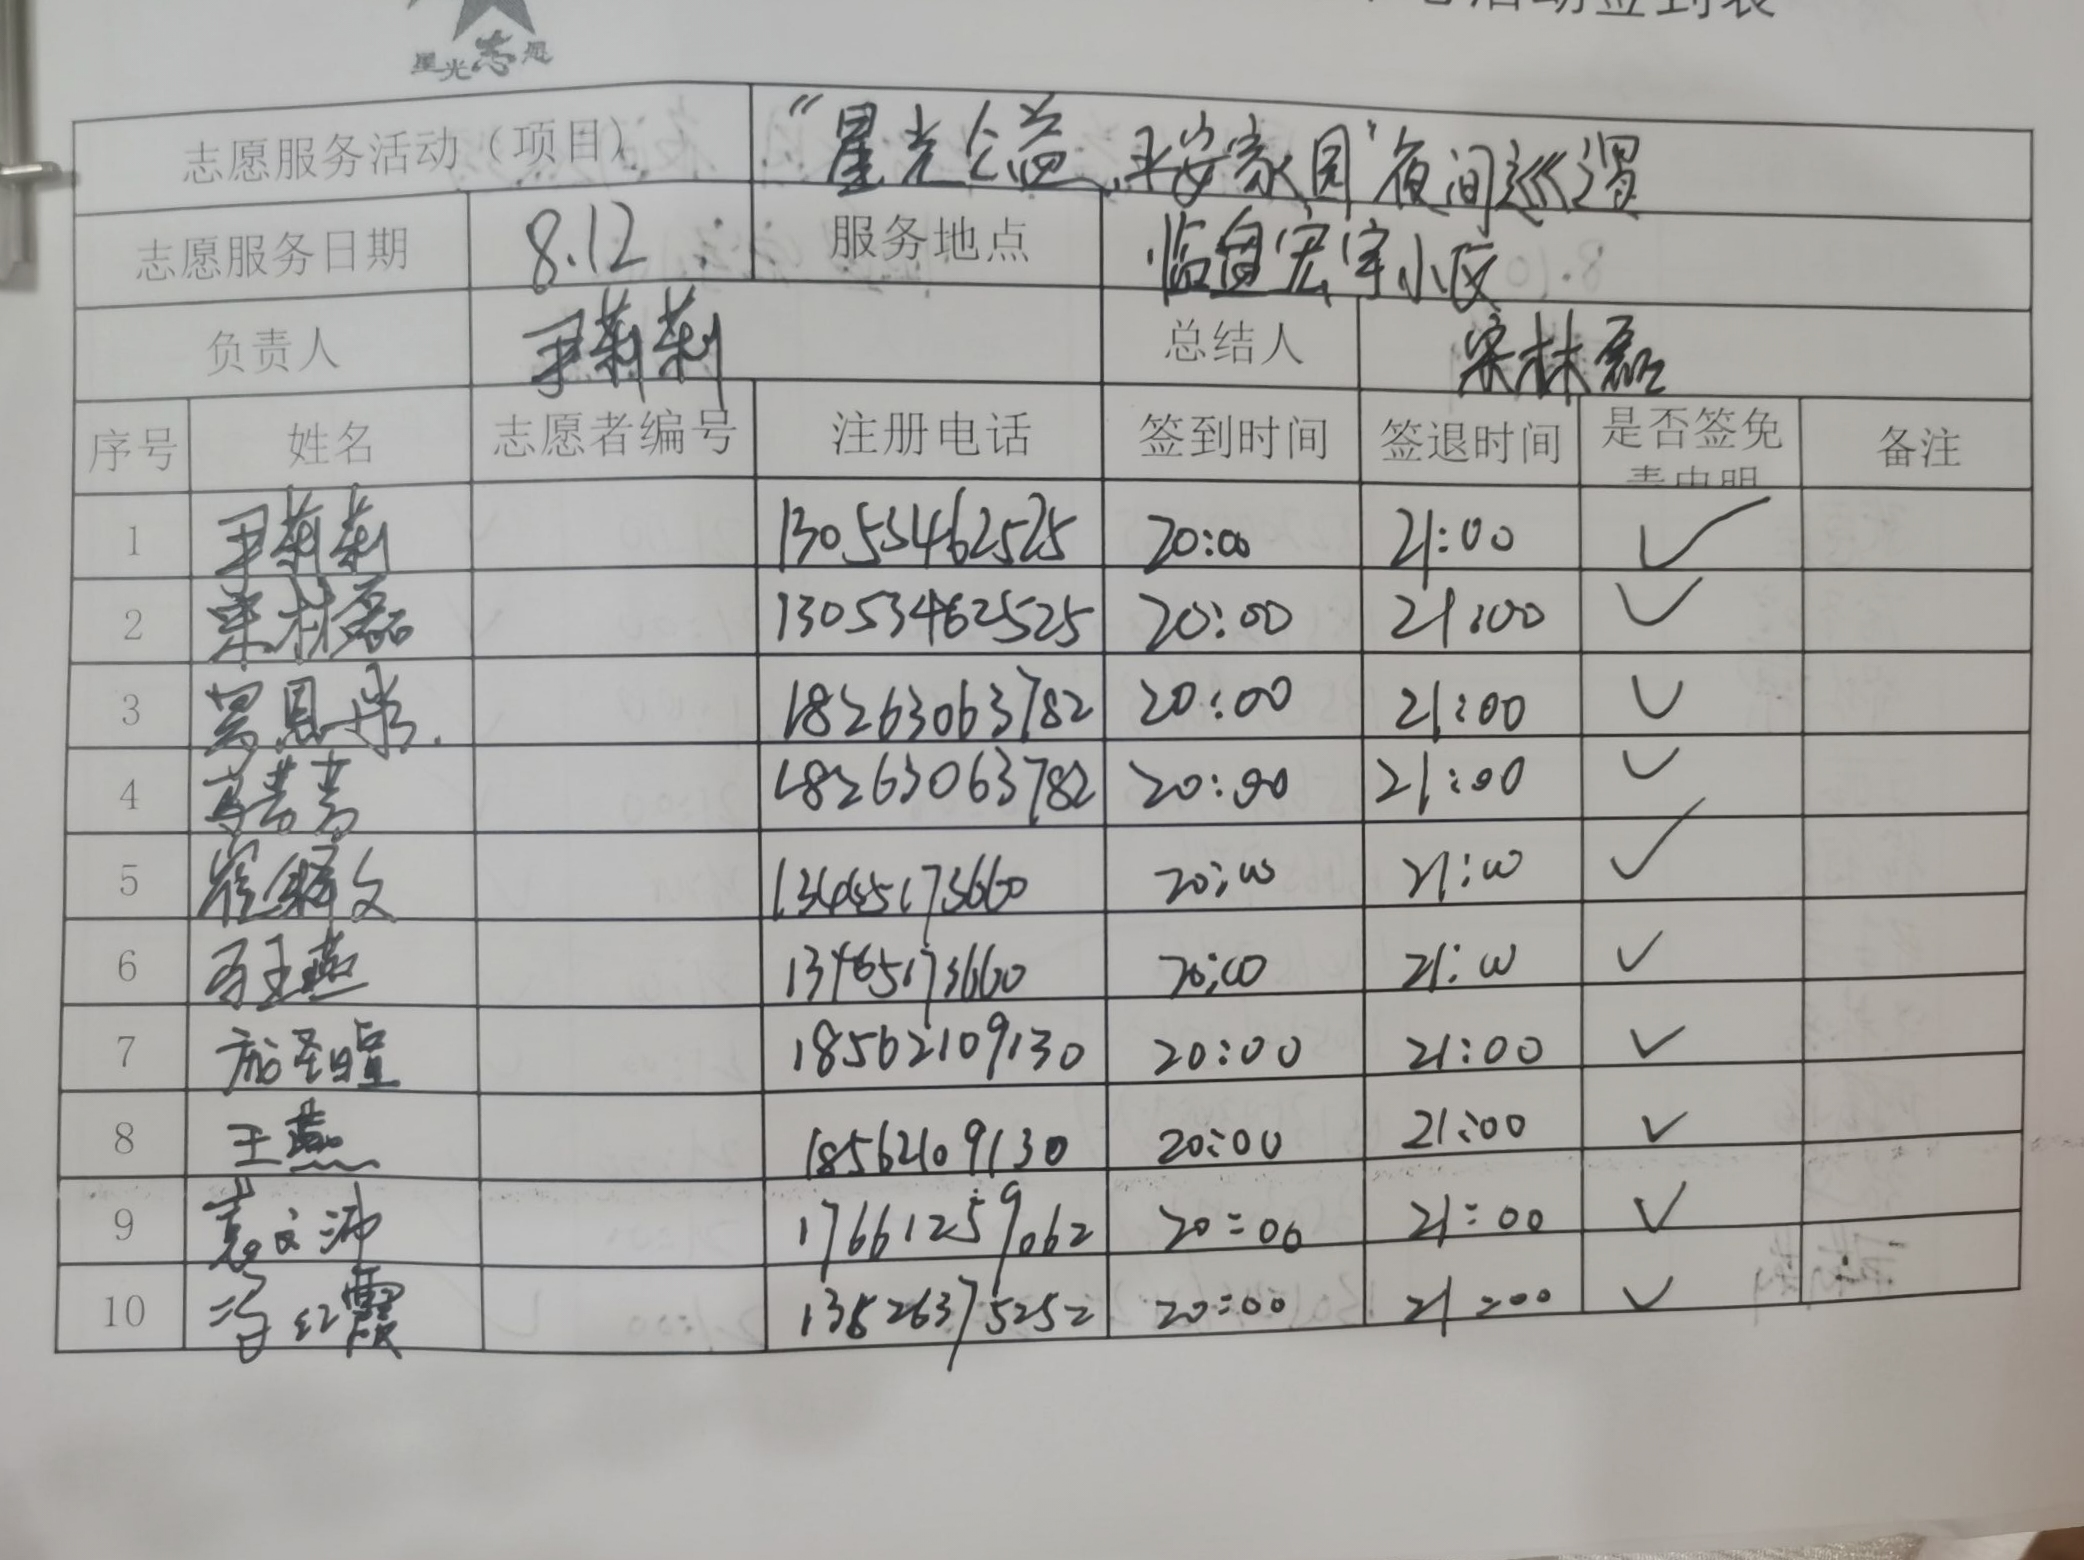 星光志愿
活动签到表
志愿服务活动（项目） “星光公益，平安家园”夜间巡逻
志愿服务日期 8.12 服务地点 临盘宏宇小区
负责人 王莉莉 总结人 宋林磊
序号 姓名 志愿者编号 注册电话 签到时间 签退时间 是否签免责申明 备注
1 王莉莉 13053462525 20:00 21:00 ✓
2 宋林磊 13053462525 20:00 21:00 ✓
3 18263063782 20:00 21:00 ✓
4 18263063782 20:00 21:00 ✓
5 崔 文 13465173660 20:00 21:00 ✓
6 13465173660 20:00 21:00 ✓
7 18562109130 20:00 21:00 ✓
8 王燕 18562109130 20:00 21:00 ✓
9 袁文沛 17661259062 20:00 21:00 ✓
10 冯红霞 20:00 21:00 ✓